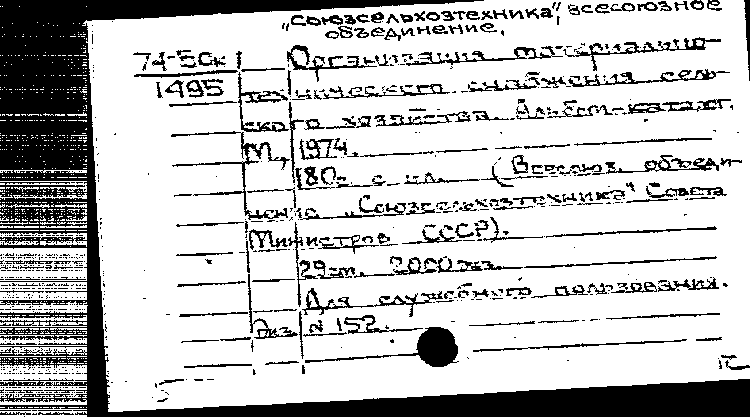 „Союзсельхозтехника", всесоюзное
объединение.
74-5Ск
1495
Организация материально-
технического снабжения сель-
ского хозяйства. Альбом-каталог.
М., 1974.
180с. с ил. (Всесоюз. объеди-
нение „Союзсельхозтехника" Совета
Министров СССР).
29см. 2000экз.
Для служебного пользования.
Экз. № 152.